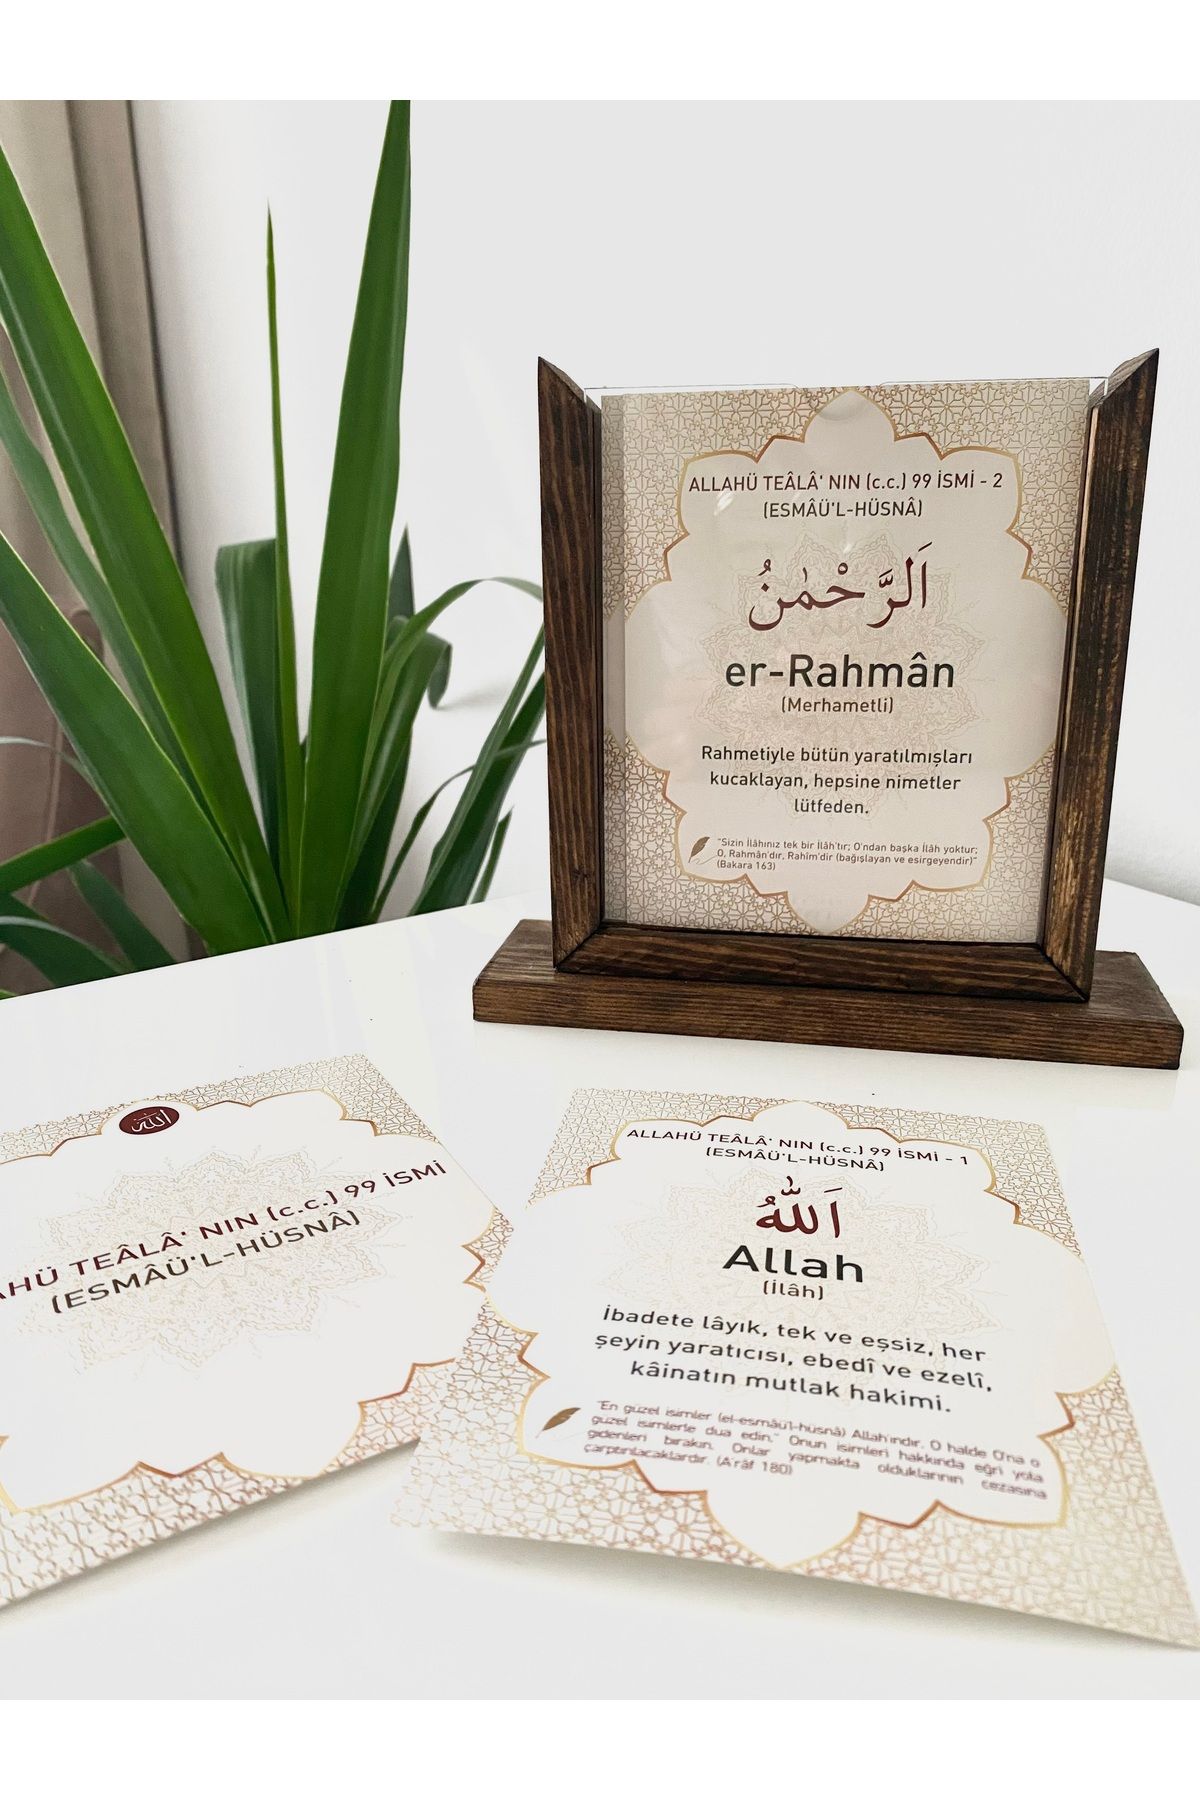 ALLAHÜ TEÂLÂ' NIN (c.c.) 99 İSMİ - 2
(ESMÂÜ'L-HÜSNÂ)
اَلرَّحْمٰنُ
er-Rahmân
(Merhametli)
Rahmetiyle bütün yaratılmışları
kucaklayan, hepsine nimetler
lütfeden.
"Sizin İlâhınız tek bir İlâh'tır; O'ndan başka İlâh yoktur;
O, Rahmân'dır, Rahîm'dir (bağışlayan ve esirgeyendir)"
(Bakara 163)
الله
AHÜ TEÂLÂ' NIN (c.c.) 99 İSMİ
(ESMÂÜ'L-HÜSNÂ)
ALLAHÜ TEÂLÂ' NIN (c.c.) 99 İSMİ - 1
(ESMÂÜ'L-HÜSNÂ)
اَللّٰهُ
Allah
(İlâh)
İbadete lâyık, tek ve eşsiz, her
şeyin yaratıcısı, ebedî ve ezelî,
kâinatın mutlak hakimi.
"En güzel isimler (el-esmâü'l-hüsnâ) Allah'ındır. O halde O'na o
güzel isimlerle dua edin." Onun isimleri hakkında eğri yola
gidenleri bırakın. Onlar yapmakta olduklarının cezasına
çarptırılacaklardır. (A'râf 180)